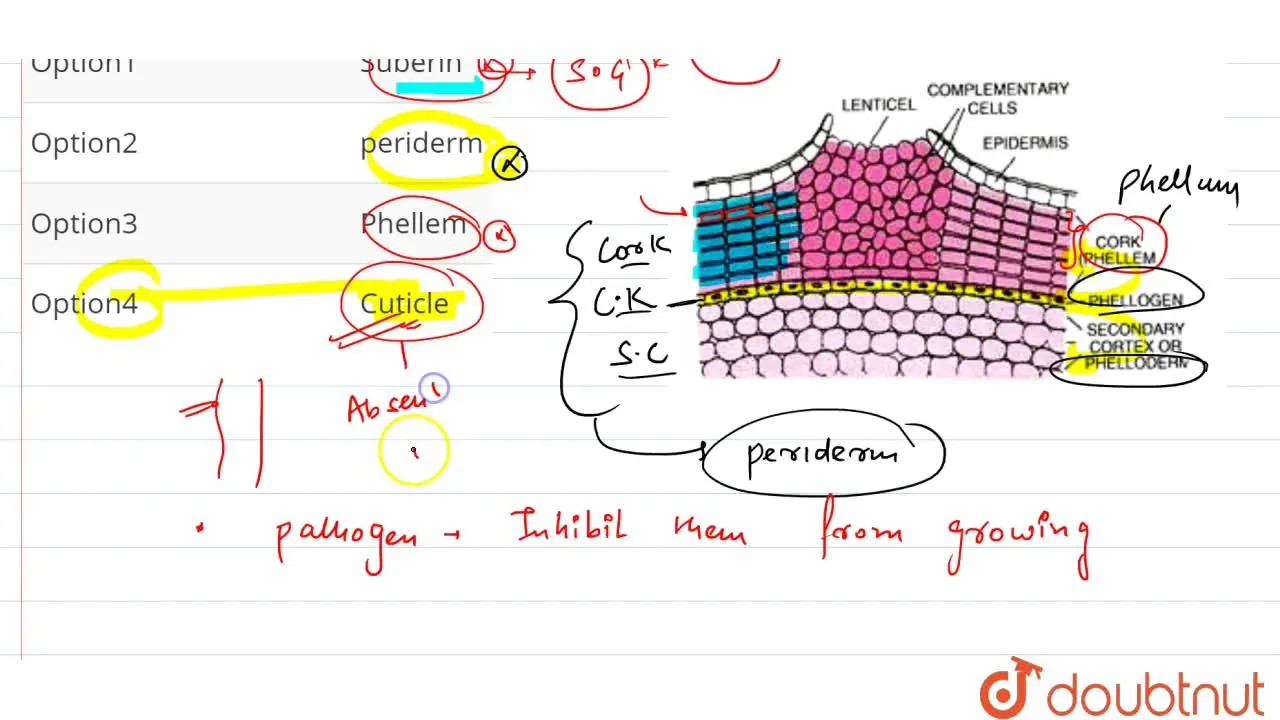 Option1 Suberin
S.G
Option2 periderm
Option3 Phellem
Option4 Cuticle
Absent
LENTICEL
COMPLEMENTARY
CELLS
EPIDERMIS
Phellum
CORK
(PHELLEM
PHELLOGEN
SECONDARY
CORTEX OR
PHELLODERM
Cork
C.K
S.C
periderm
pathogen → Inhibit them from growing
doubtnut